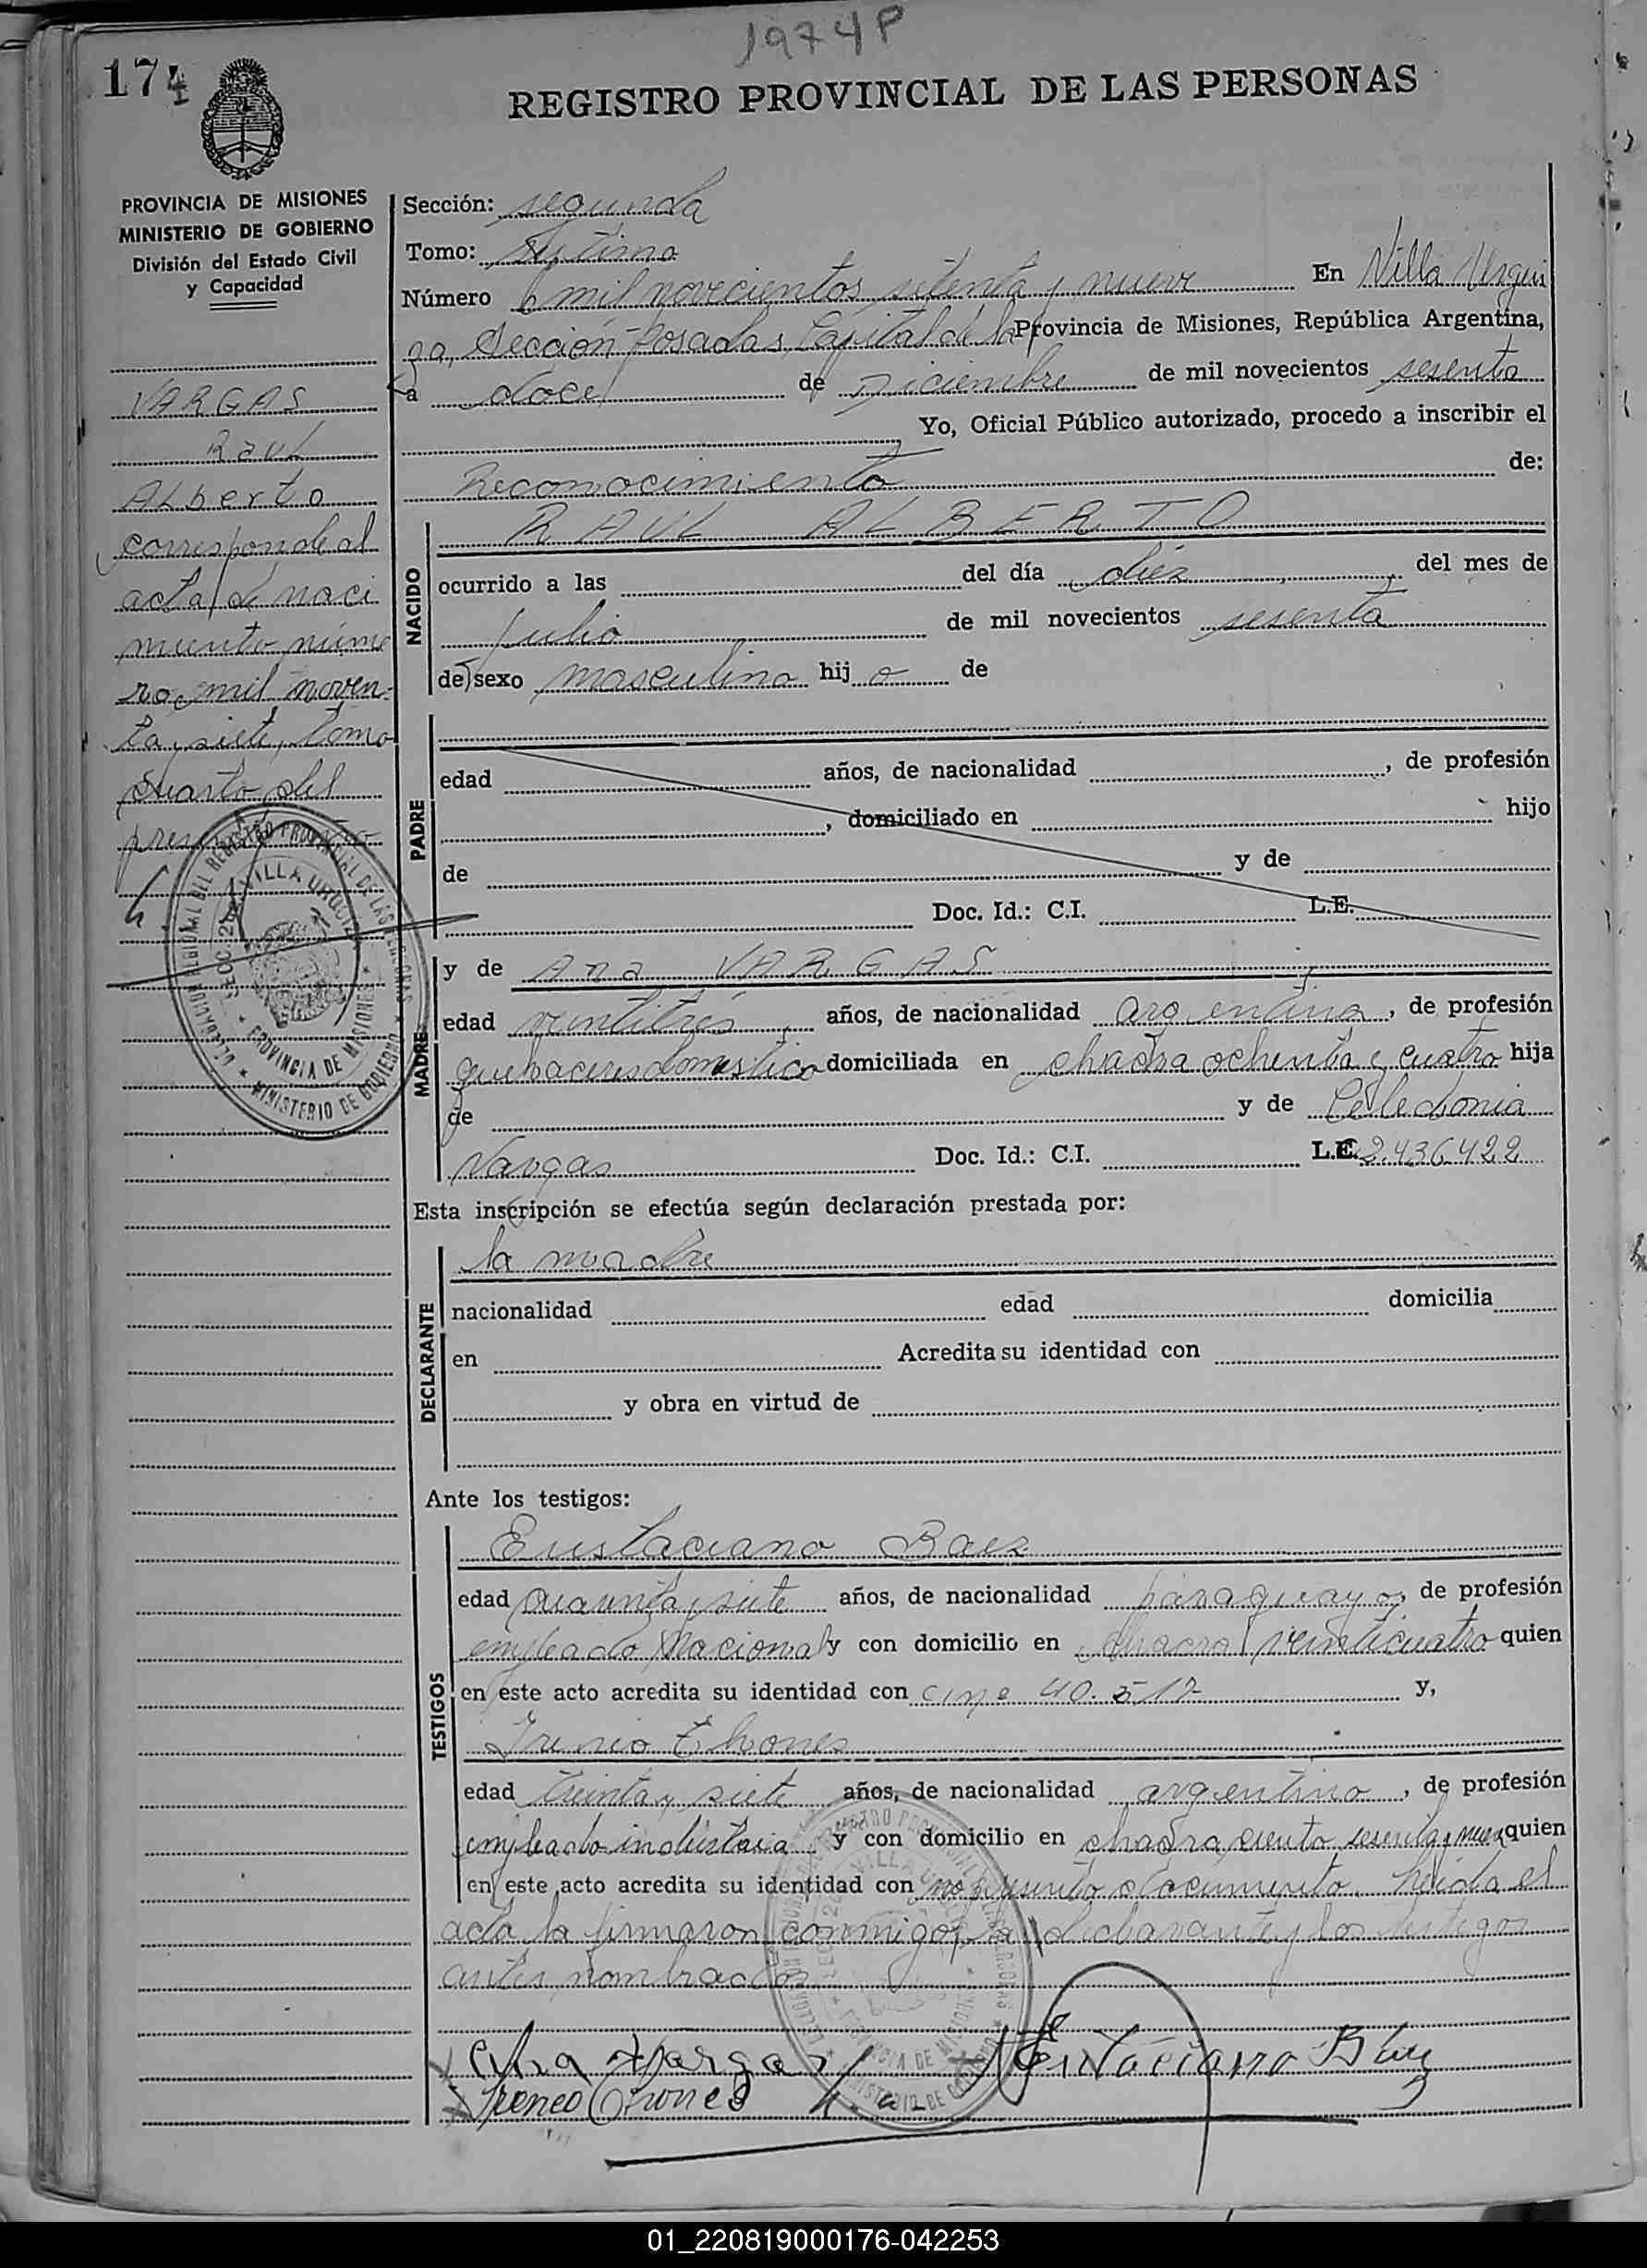 1974P
174
REGISTRO PROVINCIAL DE LAS PERSONAS
PROVINCIA DE MISIONES
MINISTERIO DE GOBIERNO
División del Estado Civil
y Capacidad
VARGAS
Raul
Alberto
corresponde al
acta de naci
miento núme
ro mil noven-
ta y siete, tomo
cuarto del
Sección: segunda
Tomo: septimo
Número mil novecientos setenta y nueve En Villa Urqui
za, Sección Posadas, Capital de la Provincia de Misiones, República Argentina,
a doce de Diciembre de mil novecientos sesenta
Yo, Oficial Público autorizado, procedo a inscribir el
Reconocimiento de:
NACIDO
RAUL ALBERTO
ocurrido a las del día diez, del mes de
Julio de mil novecientos sesenta
de sexo masculino hij o de
PADRE
edad años, de nacionalidad , de profesión
, domiciliado en hijo
de y de
Doc. Id.: C.I. L.E.
MADRE
y de Ana VARGAS
edad veintitrés años, de nacionalidad argentina, de profesión
quehaceres domestico domiciliada en chacra ochenta y cuatro hija
de y de Celedonia
Vargas Doc. Id.: C.I. L.E. 2.436.422
Esta inscripción se efectúa según declaración prestada por:
DECLARANTE
la madre
nacionalidad edad domicilia
en Acredita su identidad con
y obra en virtud de
Ante los testigos:
TESTIGOS
Eustaciano Baez
edad cuarenta y siete años, de nacionalidad paraguayo, de profesión
empleado Nacional y con domicilio en chacra veinticuatro quien
en este acto acredita su identidad con 40.517 y,
Irenio
edad treinta y siete años, de nacionalidad argentino, de profesión
empleado industria y con domicilio en chacra ciento sesenta y nueve quien
en este acto acredita su identidad con no presento documento. Leida el
acta la firmaron conmigo, la declarante y los testigos
antes nombrados
Ana Vargas Eustaciano Baez
Ireneo
DELEGACION REGIONAL DEL REGISTRO PROVINCIAL DE LAS PERSONAS
VILLA URQUIZA
PROVINCIA DE MISIONES
MINISTERIO DE GOBIERNO
01_220819000176-042253